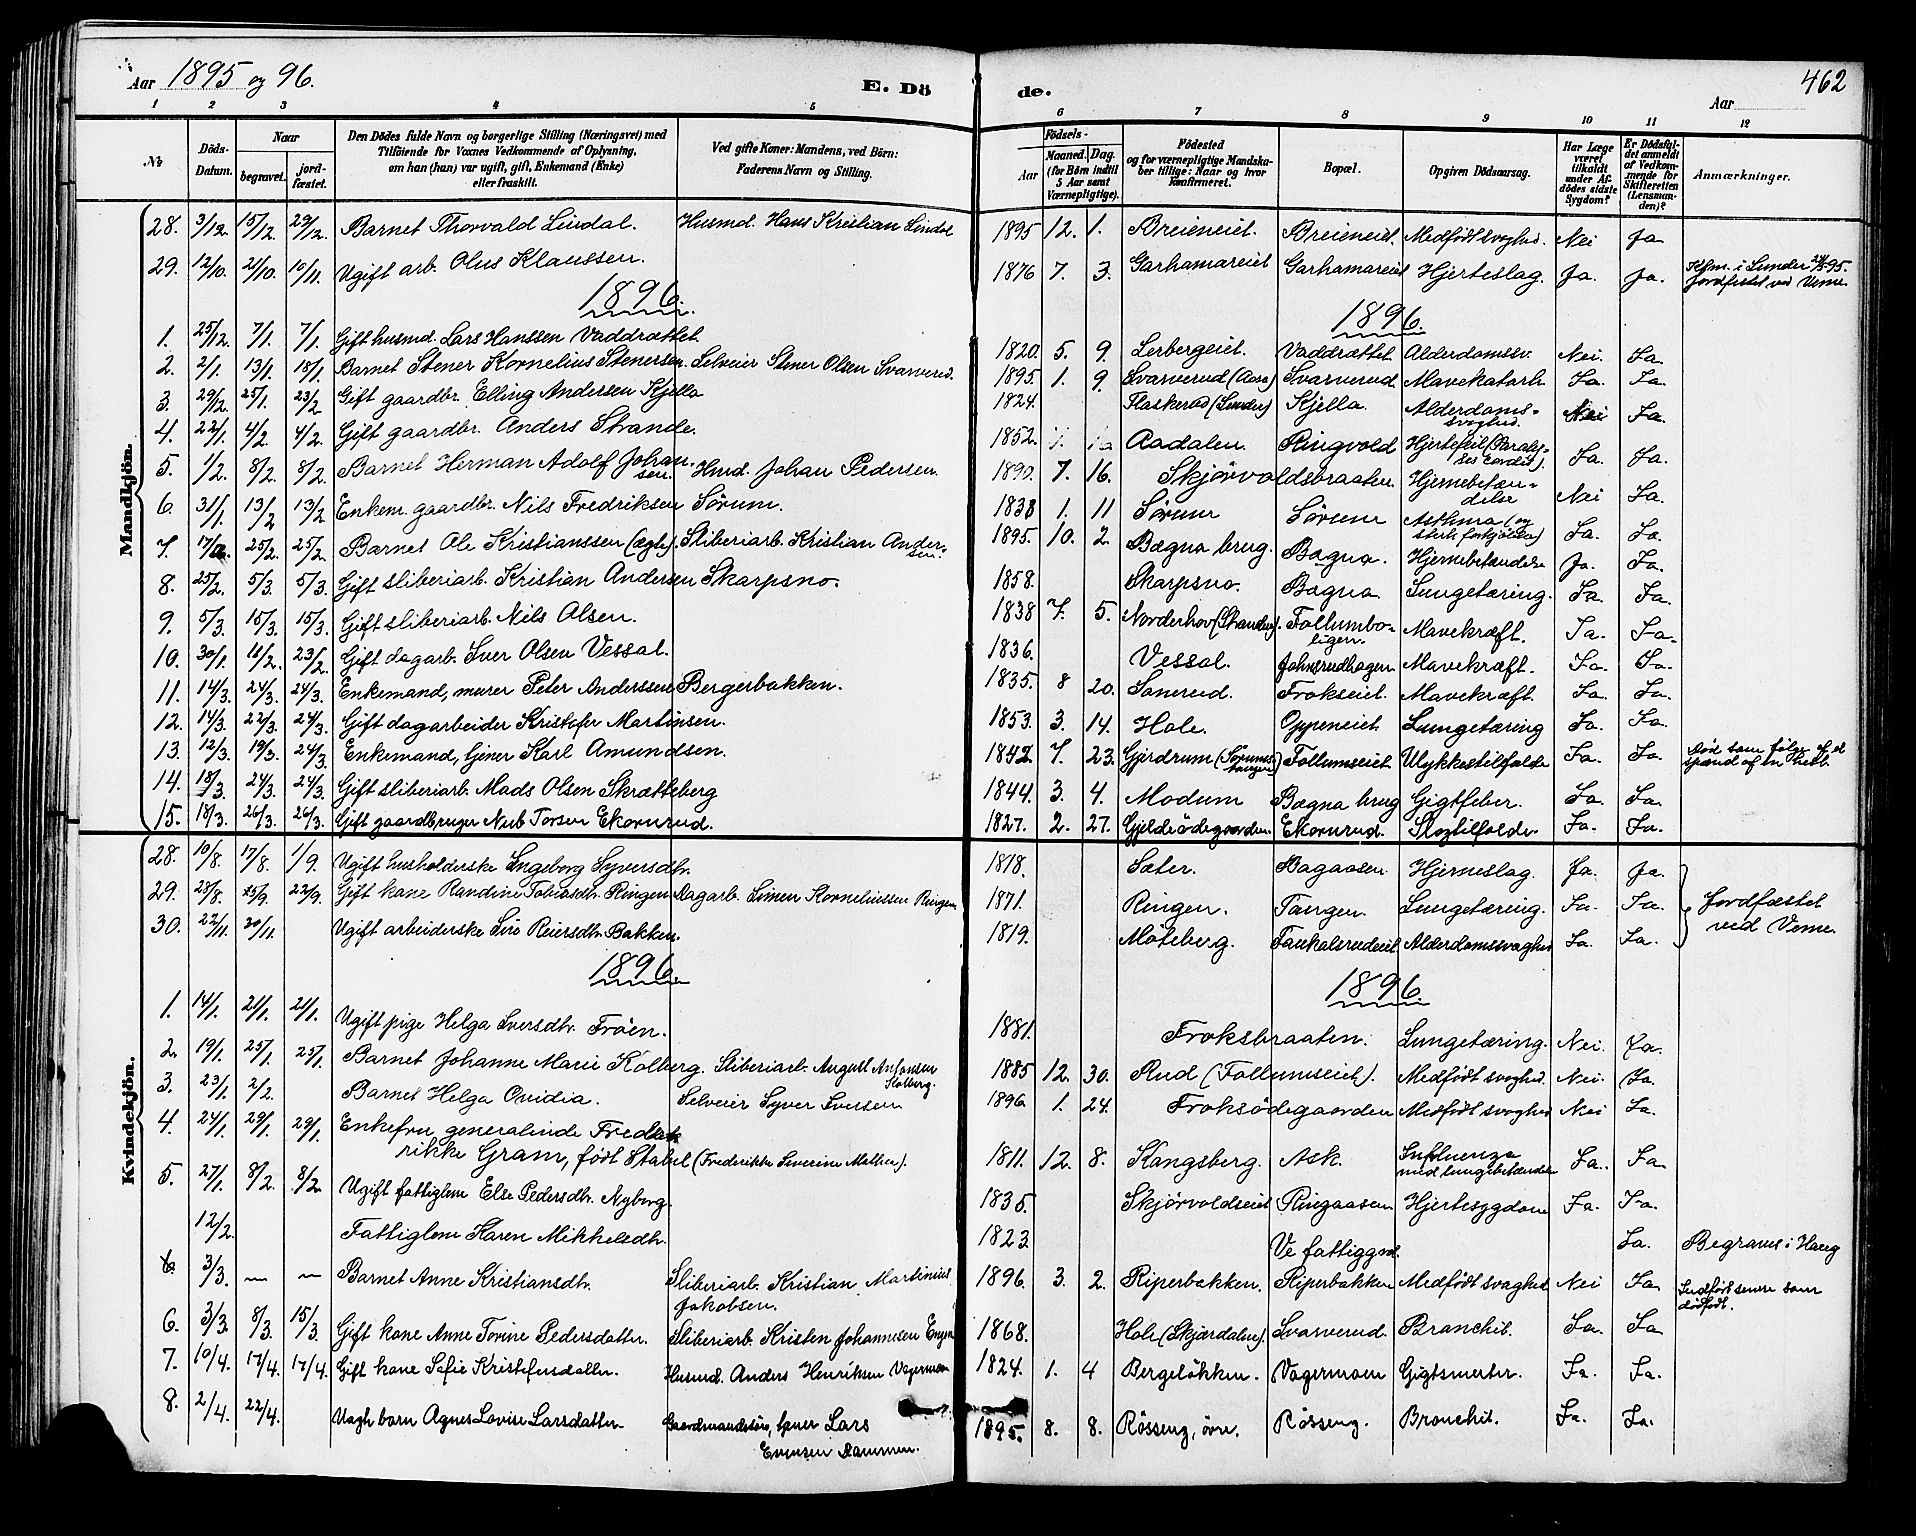 Aar 1895 og 96.
E. Dö
de.
Aar
462
1 2 3 4 5
6 7 8 9 10 11 12
No
Döds-Datum.
Naar
begravet.
jord-fæstet.
Den Dödes fulde Navn og borgerlige Stilling (Næringsvei) med
Tilföiende for Voxnes Vedkommende af Oplysning,
om han (hun) var ugift, gift, Enkemand (Enke)
eller fraskilt.
Ved gifte Koner: Mandens, ved Börn:
Faderens Navn og Stilling.
Födsels-
Aar
Maaned. Dag.
(for Börn indtil
5 Aar samt
Værnepligtige).
Födested
og for værnepligtige Mandska-
ber tillige: Naar og hvor
Konfirmeret.
Bopæl.
Opgiven Dödsaarsag.
Har Læge
været
tilkaldt
under Af-
dödes sidste
Sygdom?
Er Dödsfal-
det anmeldt
af Vedkom-
mende for
Skifteretten
(Lensman-
den)?
Anmærkninger.
Mandkjön.
28. 3/12. 15/12. 29/12. Barnet Thorvald Lindal. Husmd. Hans Kristian Lindal 1895 12. 1. Breieneiet. Breieneiet. Medfödt svaghed. Nei Ja
29. 12/10. 21/10. 10/11. Ugift arb. Olus Klaussen. 1876 7. 3. Garhamareiet Garhamareiet Hjerteslag. Ja. Ja. Kfm. i Lunder 95.
Jordfæstet ved Veme.
1896. 1896.
1. 25/12. 7/1. 7/1. Gift husmd. Lars Hanssen Vaddrættet. 1820. 5. 9. Lerbergeiet. Vaddrættet Alderdomssv. Nei. Ja.
2. 2/1. 13/1. 18/1. Barnet Stener Kornelius Stenersen. Selveier Stener Olsen Svarverud. 1895. 1. 9. Svarverud (Aasa) Svarverud. Mavekatarh. Ja. Ja.
3. 29/12. 25/1. 23/2 Gift gaardbr. Elling Andersen Kjella 1824. Flaskerud (Lunder) Kjella. Alderdoms-
svaghed. Nei Ja.
4. 22/1. 4/2. 4/2. Gift gaardbr. Anders Strande. 1852. Aadalen. Ringvold Hjertefeil (Paraly-
ses cordis). Ja. Ja.
5. 1/2. 8/2. 8/2. Barnet Herman Adolf Johan-
sen. Hmd. Johan Pedersen. 1890. 7. 16. Skjörvoldsbraaten. Hjernebetæn-
delse Nei Ja.
6. 31/1. 13/2 13/2 Enkem. gaardbr. Nils Fredriksen Sörum. 1838 1. 11 Sörum Sörum Asthma (og
sterk forkjölelse) Ja. Ja.
7. 25/2. 25/2. Barnet Ole Kristianssen (ægte). Sliberiarb. Kristian Ander-
sen. 1895. 10. 2. Bægna brug. Bægna. Hjernebetændelse Ja. Ja.
8. 25/2. 5/3. 5/3. Gift sliberiarb. Kristian Andersen Skarpsno. 1858. Skarpsno. Bægna Lungetæring. Ja. Ja.
9. 5/3. 15/3. 15/3. Gift sliberiarb. Nils Olsen. 1838 7. 5. Norderhov (Stranden). Follumbo-
ligen. Mavekræft. Ja. Ja.
10. 30/1. 18/2. 23/2. Gift dagarb. Iver Olsen Vessal. 1836. Vessal. Johnsrudhagen Mavekræft. Ja. Ja.
11. 14/3. 24/3. 24/3. Enkemand, murer Peter Anderssen Bergerbakken. 1835. 8 20. Sonerud. Frokseiet. Mavekræft. Ja. Ja.
12. 14/3. 22/3. 24/3. Gift dagarbeider Kristofer Martinsen. 1853. 3. 14. Hole. Oppeneiet. Lungetæring Ja. Ja.
13. 12/3. 19/3. 24/3. Enkemand, Gjener Karl Amundsen. 1842. 7. 23. Gjerdrum Follumseiet Ulykkestilfælde Ja. Ja. Död som fölge af et
spænd af en hest.
14. 18/3. 24/3. 24/3. Gift sliberiarb. Mads Olsen Skrætteberg 1844. 3. 4. Modum Bægna brug Gigtfeber. Ja. Ja.
15. 18/3. 26/3. 26/3. Gift gaardbruger Nub Torsen Ekornrud. 1827. 2. 27. Gjeldeödegaarden. Ekornrud. Slagtilfælde. Ja. Ja.
Kvindekjön.
28. 10/8. 17/8. 1/9. Ugift husholderske Ingeborg Syversdtr. 1818. Sæter. Bagaasen. Hjerneslag. Ja. Ja.
29. 28/8. 25/9. 22/9. Gift kone Randine Tobiasdtr. Ringen Dagarb. Simen Korneliussen Ringen 1871. Ringen. Tangen. Lungetæring. Ja. Ja. Jordfæstet
30. 22/11. 30/11. Ugift arbeiderske Siri Reiersdtr. Bakken. 1819. Möteberg. Alderdomssvaghed Ja. Ja. ved Veme
1896. 1896.
1. 14/1. 21/1. 21/1. Ugift pige Helga Iversdtr. Fröen. 1881. Froksbraaten. Lungetæring. Nei. Ja.
2. 19/1. 25/1. 25/1. Barnet Johanne Marie Kolberg. Sliberiarb. August Antonsen
Kolberg. 1885 12. 30. Rud (Follumseiet). Medfödt svaghed. Nei. Ja.
3. 23/1. 2/2. Barnet Helga Ovidia. Selveier Syver Iversen 1896. 1. 24. Froksödegaarden Medfödt svaghed Nei Ja.
4. 24/1. 29/1. 29/1. Enkefru generalinde Frede-
rikke Gram, födt Stabel (Frederikke Severine Mathea). 1811. 12. 8. Kongsberg. Ask. Influenza
med lungebetændelse Ja. Ja.
5. 27/1. 8/2. 8/2. Ugift fattiglem Else Pedersdtr. Nyborg. 1835. Skjörvoldseiet Ringaasen Hjertesygdom Ja. Ja.
12/2. Fattiglem Karen Mikkelsdtr. 1823. Ve fattiggrd. Ja. Begraves i Haug
6. 3/3. — — Barnet Anne Kristiansdtr. Sliberiarb. Kristian Martinius
Jakobsen. 1896 3. 2. Riperbakken. Riperbakken Medfödt svaghed Nei Ja. Indfört senere som
dödfödt.
6. 3/3. 8/3. 15/3. Gift kone Anne Torine Pedersdatter. Sliberiarb. Kristen Johannesen Engen 1868. Hole (Skjærdalen). Svarverud. Bronchit. Ja. Ja
7. 10/4. 17/4. 17/4. Gift kone Sofie Kristofersdatter. Husmd. Anders Henriksen Vagermoen 1824. 1. 4 Bergelökken. Vagermoen Gigtsmerter. Ja. Ja.
8. 2/4. 22/4. Uægte barn Agnes Lovise Larsdatter Gaardmandssön, tjener Lars
Evensen Rammen. 1895. 8. 8. Rösseng, övre. Rösseng. Bronchit. Ja. Ja.